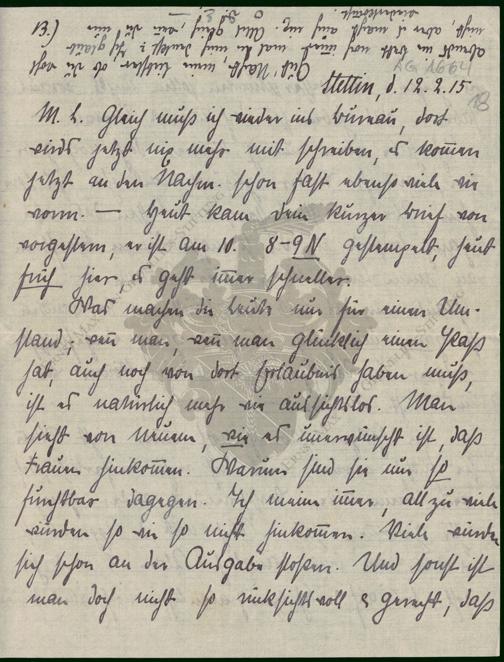 B.)
AG 1664
18
Stettin, d. 12.2.15
M. L. Gleich muß ich wieder ins Bureau, dort
wirds jetzt nix mehr mit schreiben, es kommen
jetzt an den Nachm. schon fast ebenso viele wie
vorm. — Heut kam dein kurzer Brief von
vorgestern, er ist am 10. 8–9 N gestempelt, heut
früh hier, es geht immer schneller.
Was machen die Leute nur für einen Um-
stand; wenn man, wenn man glücklich einen Paß
hat, auch noch von dort Erlaubnis haben muß,
ist es natürlich mehr wie aussichtslos. Man
sieht von neuem, wie es unerwünscht ist, daß
Frauen hinkommen. Warum sind sie nur so
furchtbar dagegen. Ich meine immer, allzu viele
würden so wie so nicht hinkommen. Viele würden
sich schon an der Ausgabe stoßen. Und sonst ist
man doch nicht so rücksichtsvoll & gerecht, daß